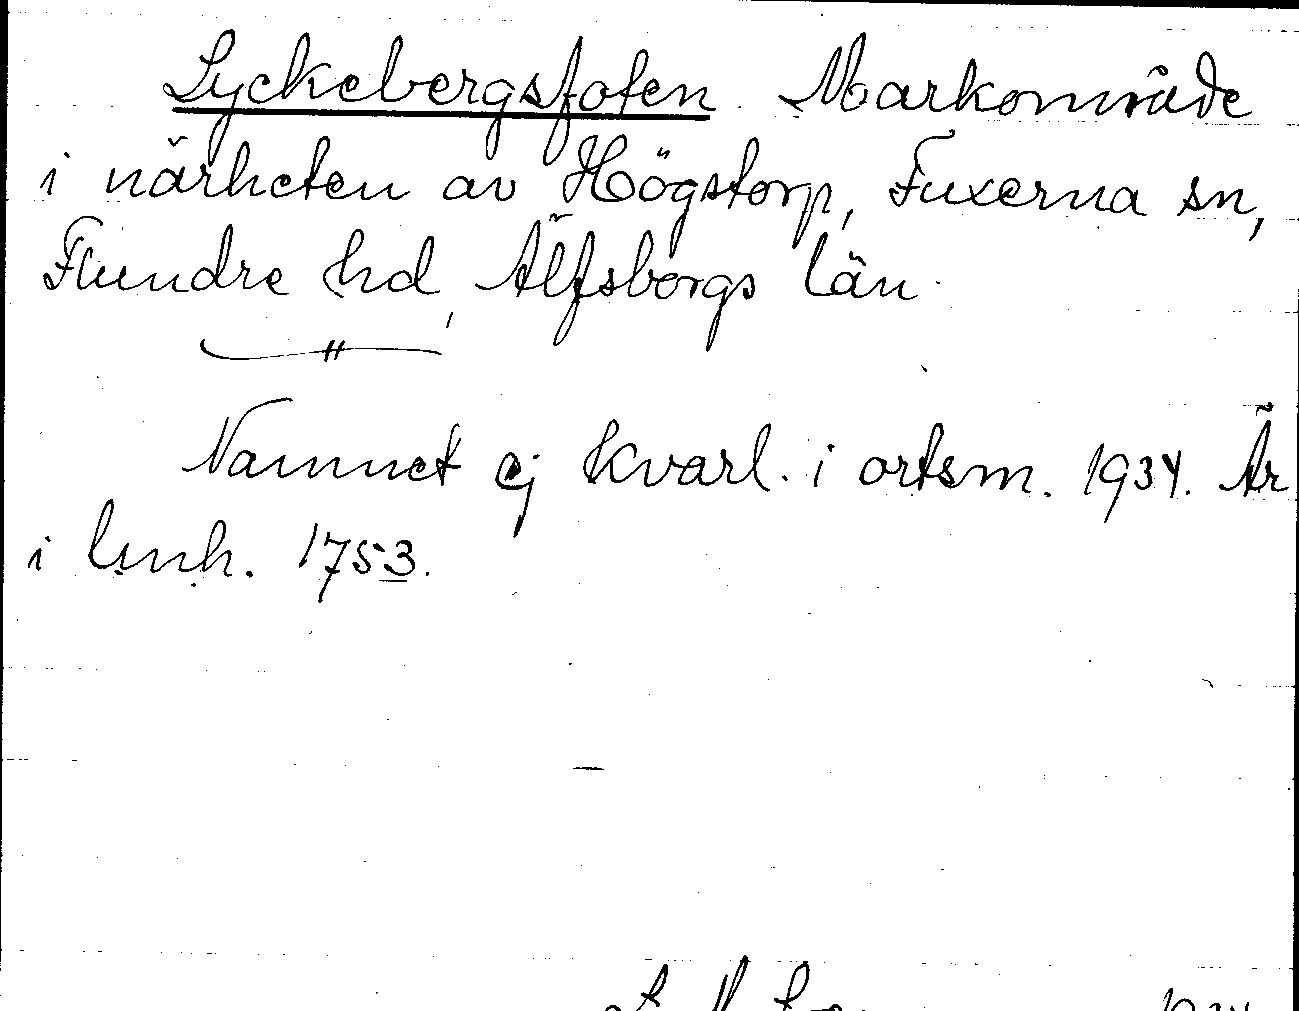 Lyckebergsfoten. Markområde
i närheten av Högstorp, Fuxerna sn,
Flundre hd, Älfsborgs län.
Namnet ej kvarl. i ortsm. 1934. Är
i lmh. 1753.
1934